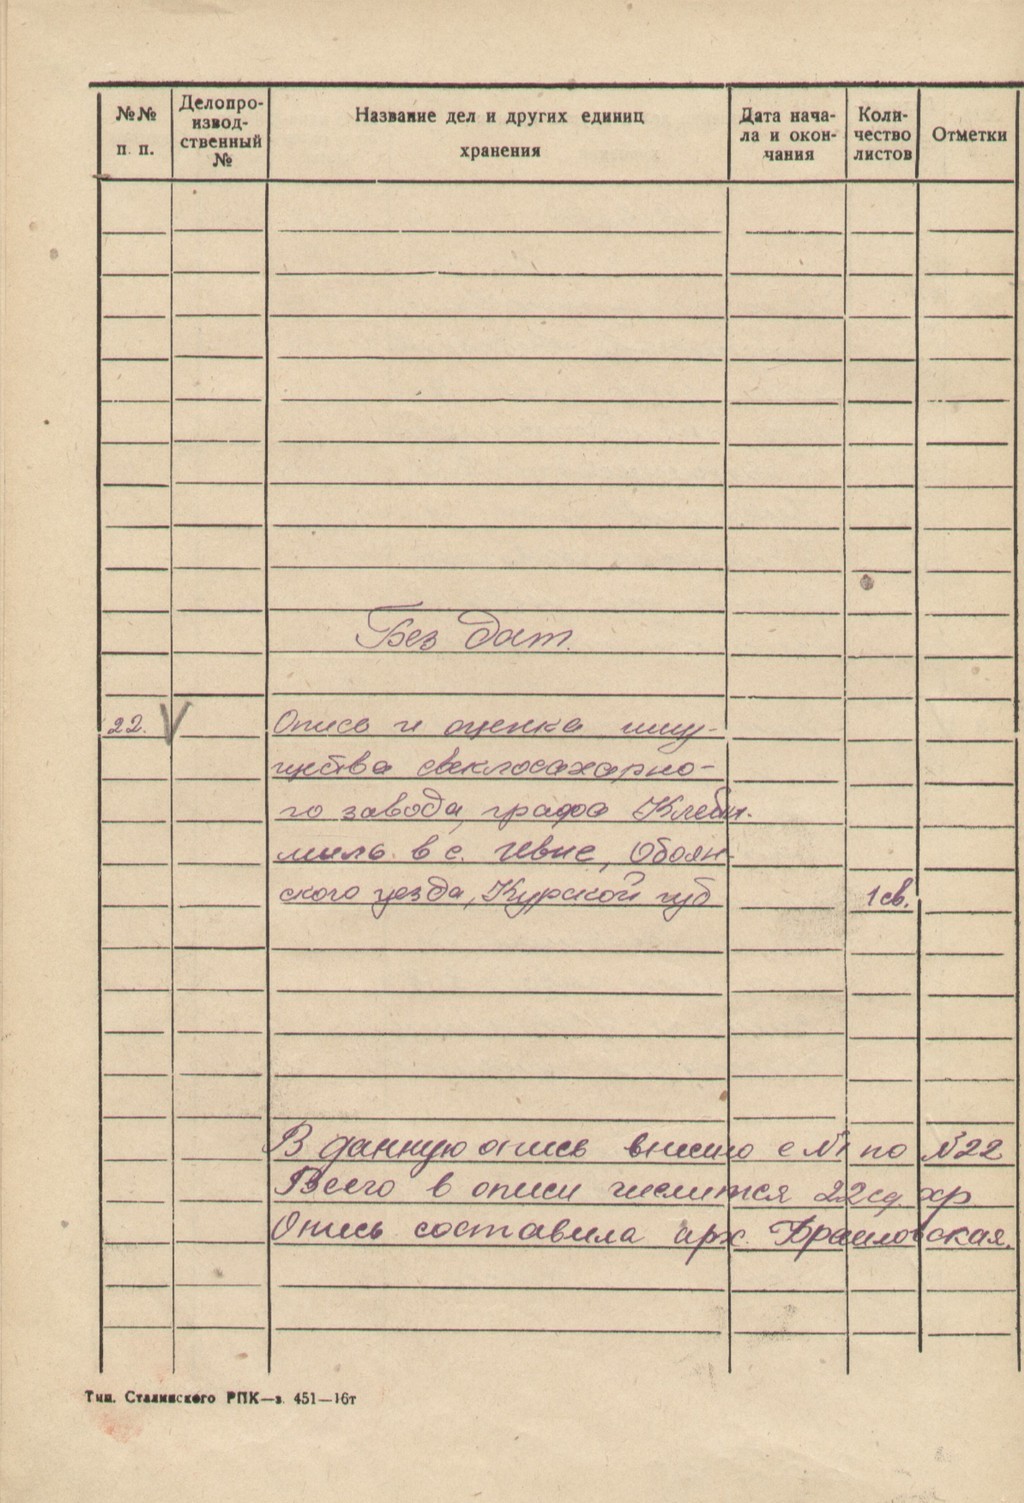 №№ п. п.
Делопроизвод-
ственный
№
Название дел и других единиц
хранения
Дата нача-
ла и окон-
чания
Коли-
чество
листов
Отметки
Без дат.
22. V
Опись и оценка иму-
щества свеклосахарно-
го завода, графа Клейн-
мыль в с. Ивне, Обоян-
ского уезда, Курской губ
1 св.
В данную опись внесено с №1 по №22
Всего в описи числится 22 ед. хр.
Опись составила арх. Браиловская.
Тип. Сталинского РПК—з. 451—16т